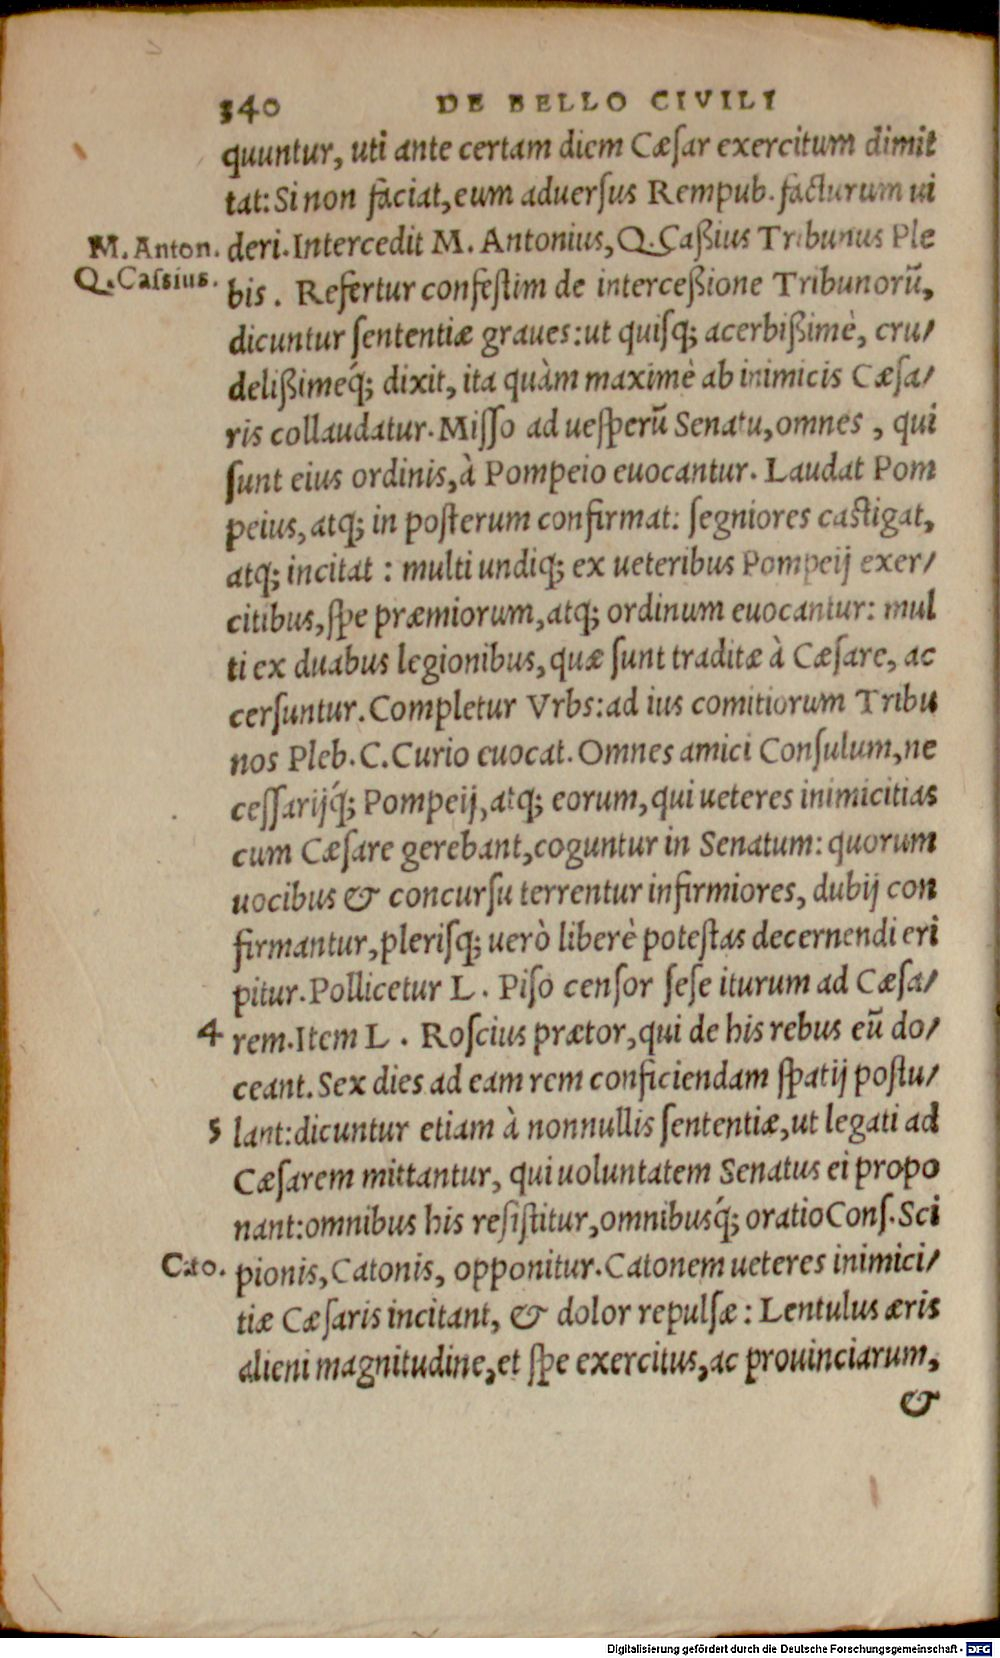 340 DE BELLO CIVILI
quuntur, uti ante certam diem Cæſar exercitum dimit
tat: Si non faciat, eum aduerſus Rempub. facturum ui
M. Anton. deri. Intercedit M. Antonius, Q. Caßius Tribunus Ple
Q. Caſsius. bis. Refertur confeſtim de interceßione Tribunorũ,
dicuntur ſententiæ graues: ut quiſq; acerbißimè, cru/
delißimeq́; dixit, ita quàm maximè ab inimicis Cæſa/
ris collaudatur. Miſſo ad ueſperũ Senatu, omnes, qui
ſunt eius ordinis, à Pompeio euocantur. Laudat Pom
peius, atq; in poſterum confirmat: ſegniores caſtigat,
atq; incitat: multi undiq; ex ueteribus Pompeij exer/
citibus, ſpe præmiorum, atq; ordinum euocantur: mul
ti ex duabus legionibus, quæ ſunt traditæ à Cæſare, ac
cerſuntur. Completur Vrbs: ad ius comitiorum Tribu
nos Pleb. C. Curio euocat. Omnes amici Conſulum, ne
ceſſarijq́; Pompeij, atq; eorum, qui ueteres inimicitias
cum Cæſare gerebant, coguntur in Senatum: quorum
uocibus & concurſu terrentur infirmiores, dubij con
firmantur, pleriſq; uerò liberè poteſtas decernendi eri
pitur. Pollicetur L. Piſo cenſor ſeſe iturum ad Cæſa/
4 rem. Item L. Roſcius prætor, qui de his rebus eũ do/
ceant. Sex dies ad eam rem conficiendam ſpatij poſtu/
5 lant: dicuntur etiam à nonnullis ſententiæ, ut legati ad
Cæſarem mittantur, qui uoluntatem Senatus ei propo
nant: omnibus his reſiſtitur, omnibusq́; oratio Conſ. Sci
Cato. pionis, Catonis, opponitur. Catonem ueteres inimici/
tiæ Cæſaris incitant, & dolor repulſæ: Lentulus æris
alieni magnitudine, et ſpe exercitus, ac prouinciarum,
&
Digitalisierung gefördert durch die Deutsche Forschungsgemeinschaft - DFG